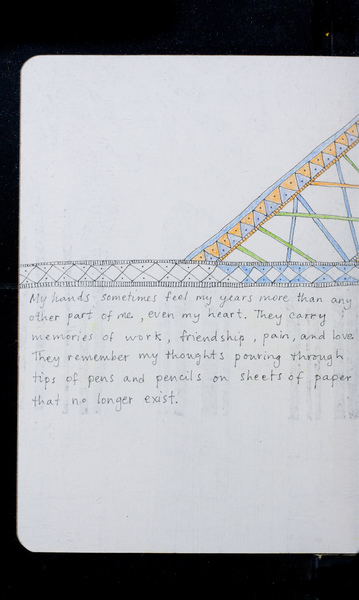 My hands sometimes feel my years more than any
other part of me, even my heart. They carry
memories of work, friendship, pain, and love.
They remember my thoughts pouring through
tips of pens and pencils on sheets of paper
that no longer exist.